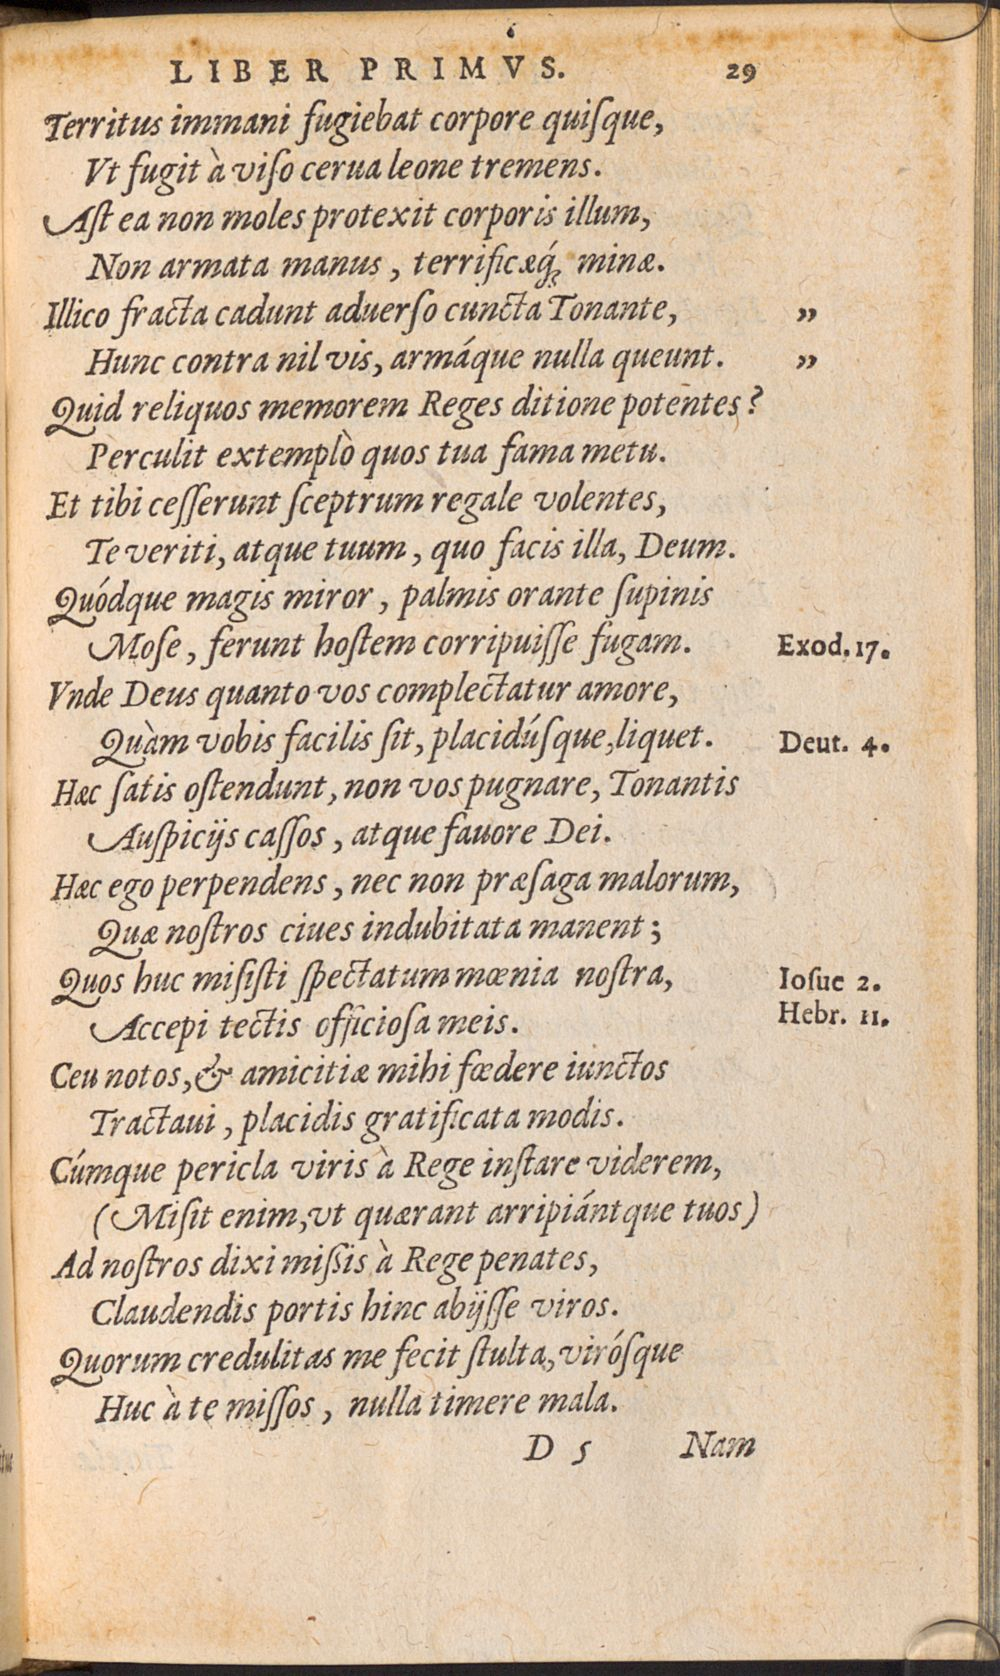 LIBER PRIMVS. 29
Territus immani fugiebat corpore quiſque,
Vt fugit à viſo cerua leone tremens.
Aſt ea non moles protexit corporis illum,
Non armata manus, terrificæq́; minæ.
Illico fracta cadunt aduerſo cuncta Tonante, ”
Hunc contra nil vis, armáque nulla queunt. ”
Quid reliquos memorem Reges ditione potentes?
Perculit extemplò quos tua fama metu.
Et tibi ceſſerunt ſceptrum regale volentes,
Te veriti, atque tuum, quo facis illa, Deum.
Quódque magis miror, palmis orante ſupinis
Moſe, ferunt hoſtem corripuiſſe fugam. Exod. 17.
Vnde Deus quanto vos complectatur amore,
Quàm vobis facilis ſit, placidúſque, liquet. Deut. 4.
Hæc ſatis oſtendunt, non vos pugnare, Tonantis
Auſpicijs caſſos, atque fauore Dei.
Hæc ego perpendens, nec non præſaga malorum,
Quæ noſtros ciues indubitata manent;
Quos huc miſiſti ſpectatum mœnia noſtra, Ioſue 2.
Accepi tectis officioſa meis. Hebr. 11.
Ceu notos, & amicitiæ mihi fœdere iunctos
Tractaui, placidis gratificata modis.
Cúmque pericla viris à Rege inſtare viderem,
(Miſit enim, vt quærant arripiántque tuos)
Ad noſtros dixi miſsis à Rege penates,
Claudendis portis hinc abijſſe viros.
Quorum credulitas me fecit ſtulta, viróſque
Huc à te miſſos, nulla timere mala.
D 5 Nam